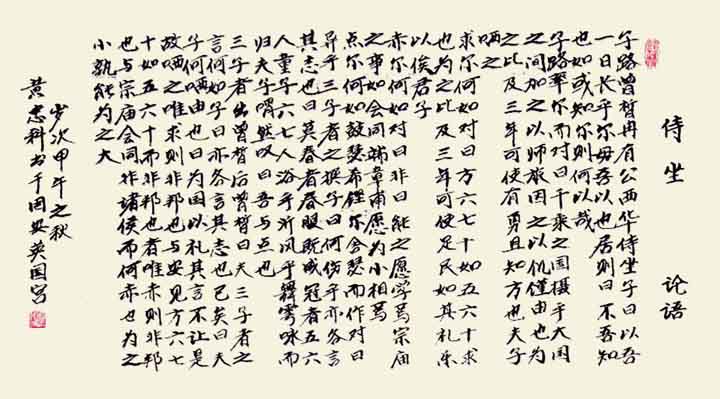 侍坐 论语
子路曾皙冉有公西华侍坐子曰以吾
一日长乎尔毋吾以也居则曰不吾知
也如或知尔则何以哉
子路率尔而对曰千乘之国摄乎大国
之间加之以师旅因之以饥馑由也为
之比及三年可使有勇且知方也夫子
哂之
求尔何如对曰方六七十如五六十求
也为之比及三年可使足民如其礼乐
以俟君子
赤尔何如对曰非曰能之愿学焉宗庙
之事如会同端章甫愿为小相焉
点尔何如鼓瑟希铿尔舍瑟而作对曰
异乎三子者之撰子曰何伤乎亦各言
其志也曰莫春者春服既成冠者五六
人童子六七人浴乎沂风乎舞雩咏而
归夫子喟然叹曰吾与点也
三子者出曾皙后曾皙曰夫三子者之
言何如子曰亦各言其志也已矣曰夫
子何哂由也曰为国以礼其言不让是
故哂之唯求则非邦也与安见方六七
十如五六十而非邦也者唯赤则非邦
也与宗庙会同非诸侯而何赤也为之
小孰能为之大
岁次甲午之秋
黄志科书于国英国写